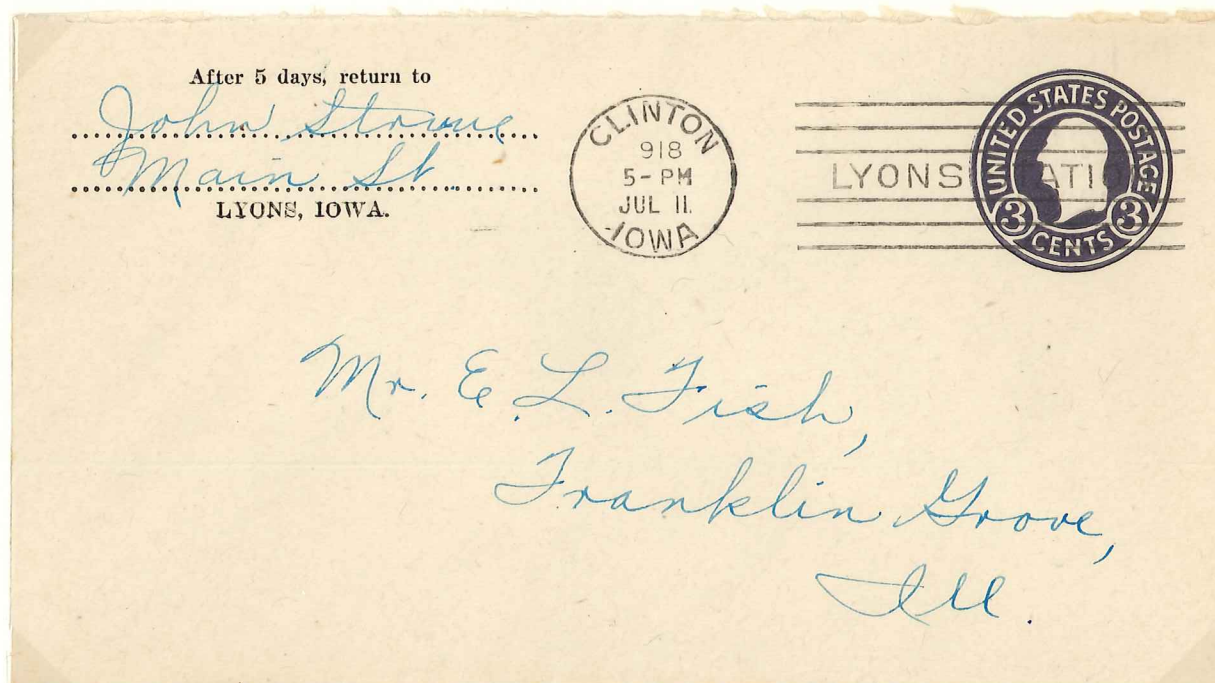 After 5 days, return to
John Stowe
Main St.
LYONS, IOWA.
CLINTON
918
5-PM
JUL 11.
IOWA
LYONS STATION
UNITED STATES POSTAGE
3 CENTS 3
Mr. E. L. Fish,
Franklin Grove,
Ill.